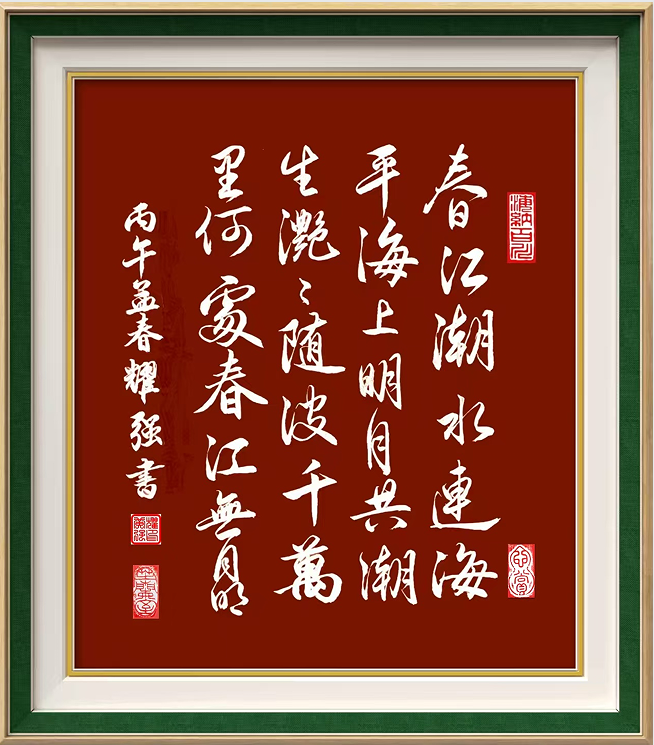 海納百川
春江潮水連海
平海上明月共潮
生灩〻随波千萬
里何處春江無月明
丙午孟春耀强書